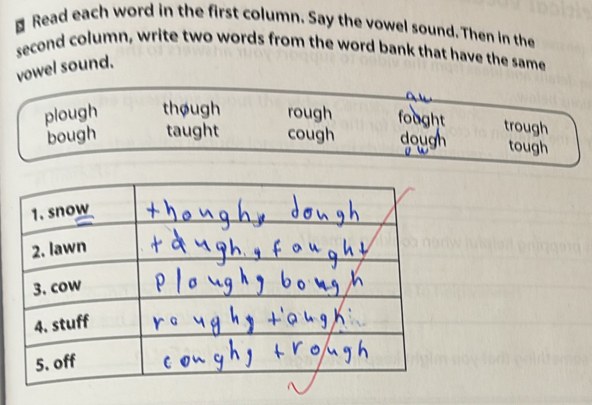 Read each word in the first column. Say the vowel sound. Then in the
second column, write two words from the word bank that have the same
vowel sound.
aw
plough though rough fought trough
bough taught cough dough tough
ow
1. snow though, dough
2. lawn taugh, faught
3. cow plough, bough
4. stuff rough, tough
5. off cough, trough